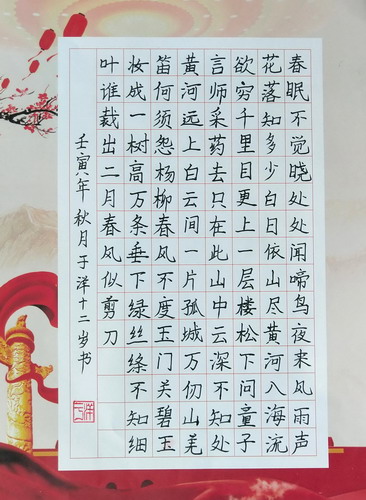 春眠不觉晓处处闻啼鸟夜来风雨声
花落知多少白日依山尽黄河入海流
欲穷千里目更上一层楼松下问童子
言师采药去只在此山中云深不知处
黄河远上白云间一片孤城万仞山羌
笛何须怨杨柳春风不度玉门关碧玉
妆成一树高万条垂下绿丝绦不知细
叶谁裁出二月春风似剪刀
壬寅年秋月于洋十二岁书